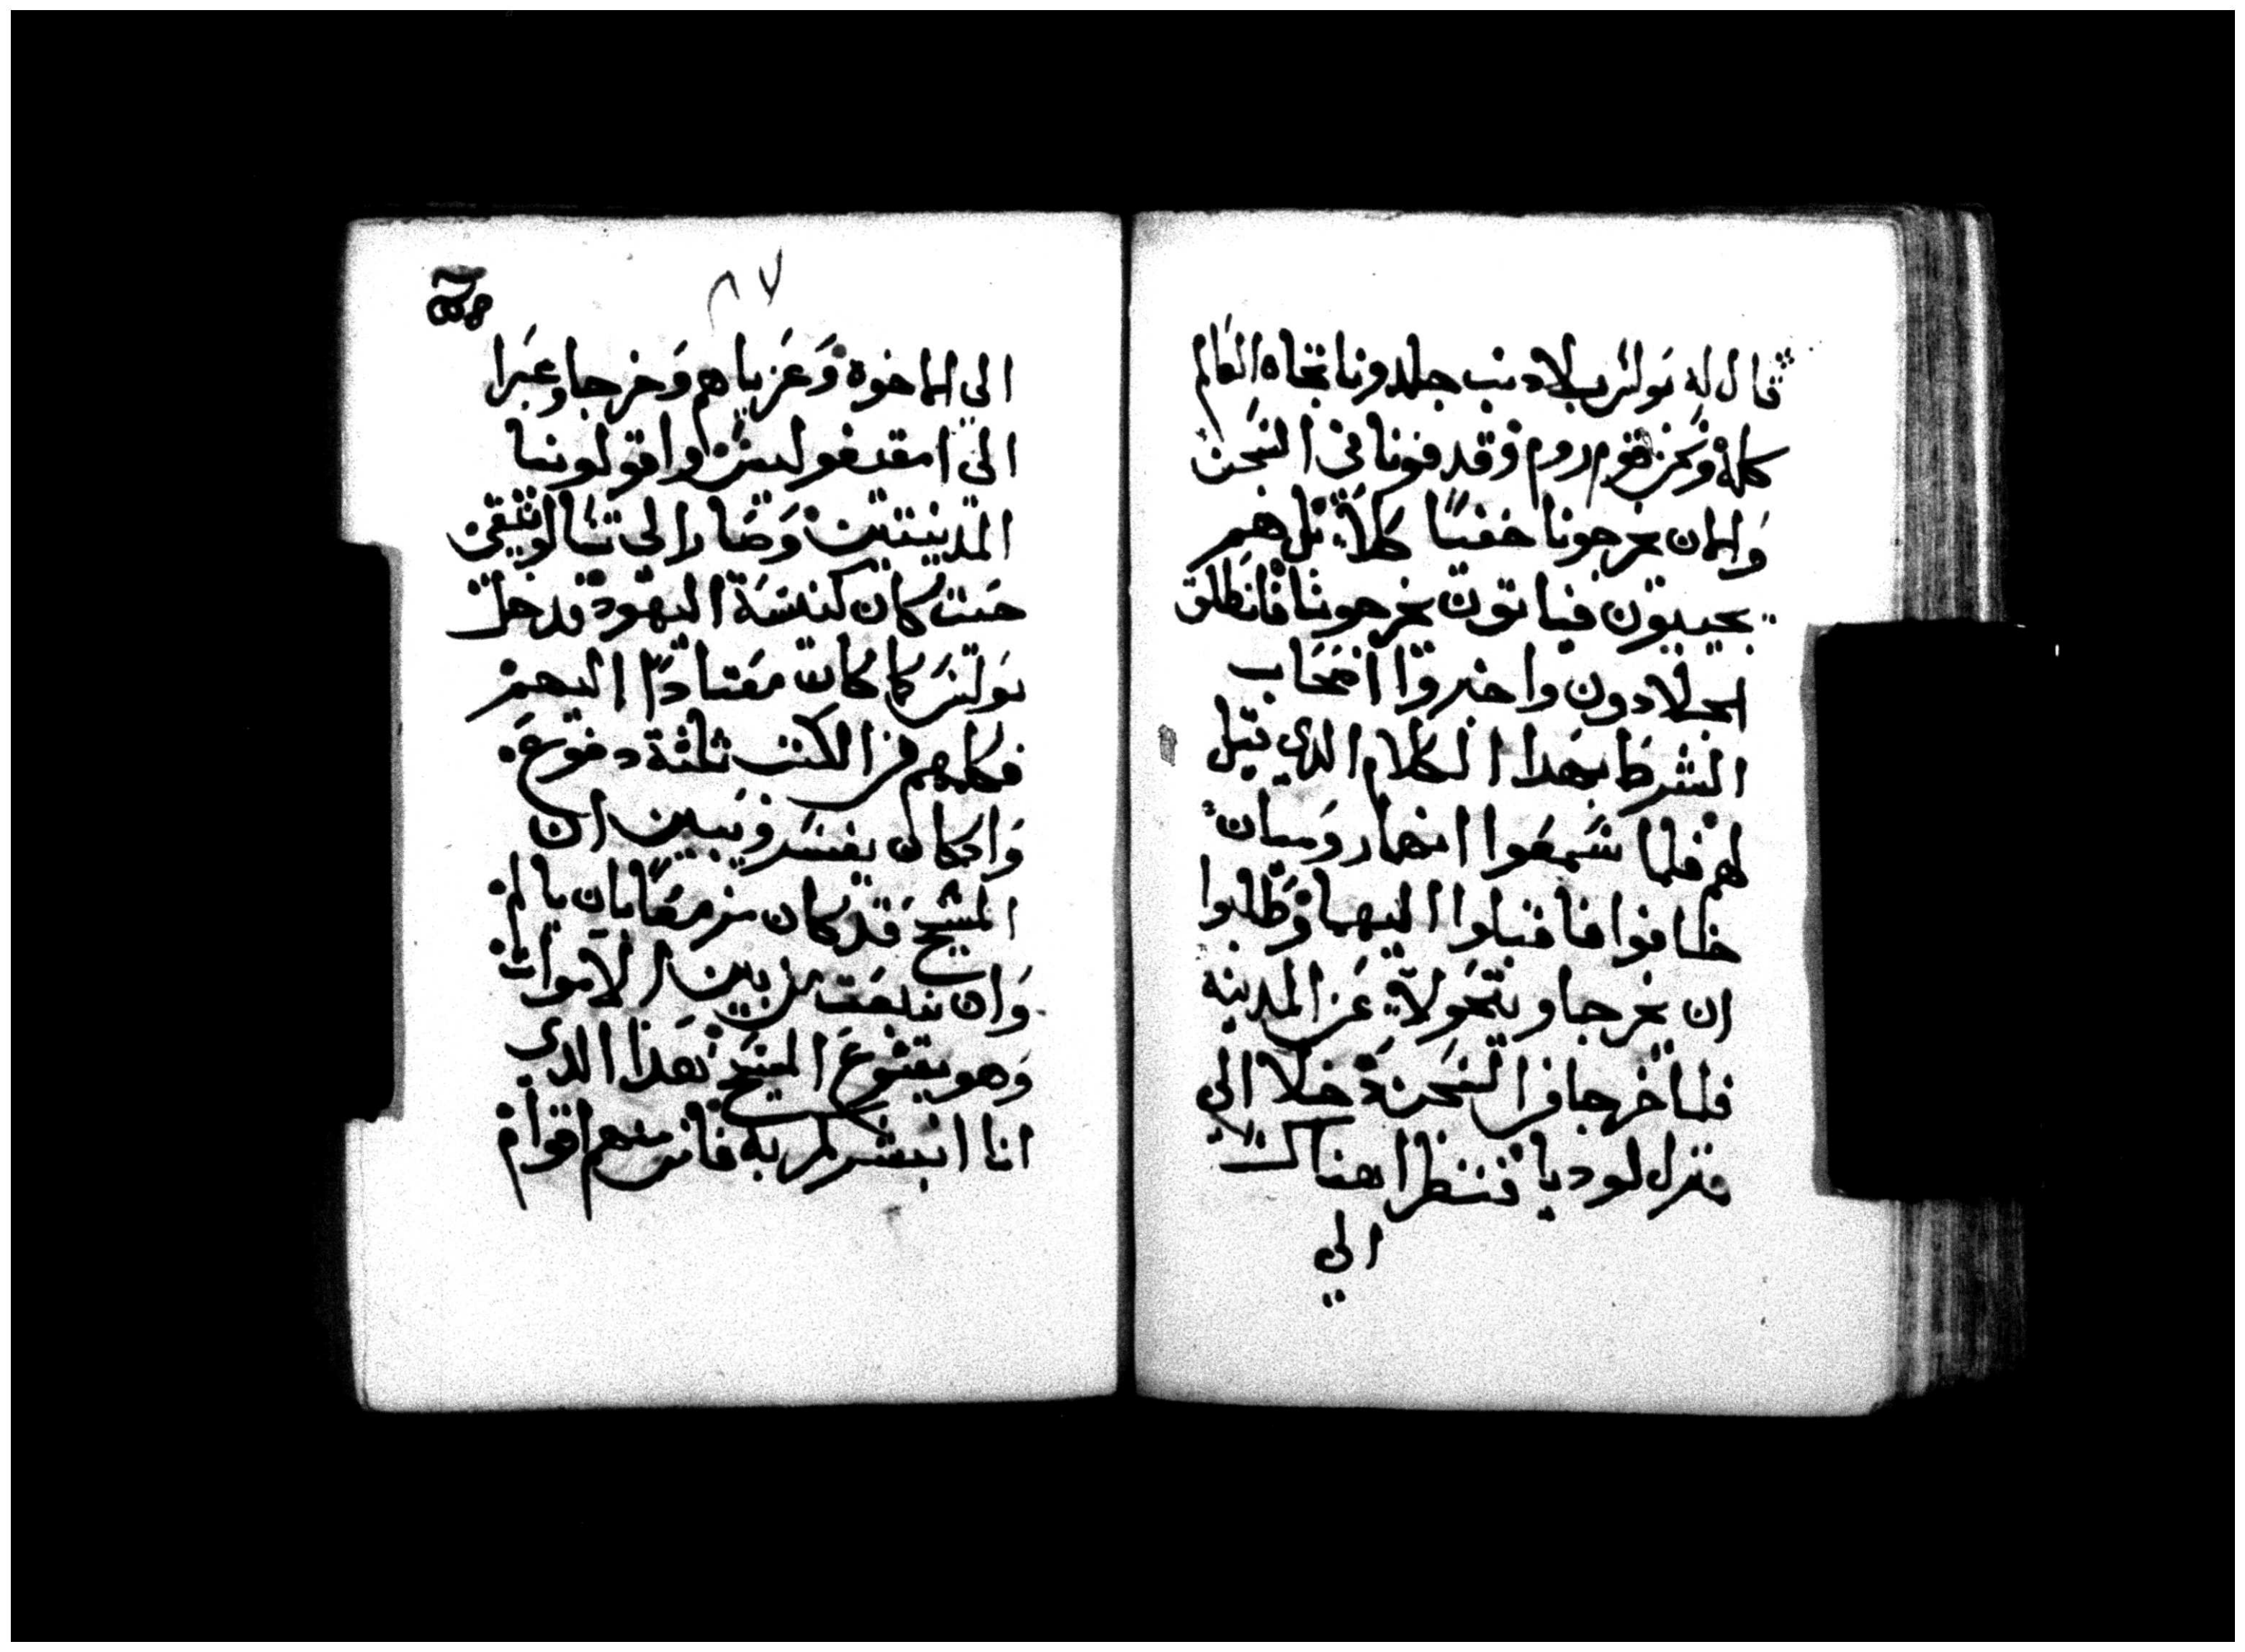 قال له بولس بلا دنب جلدونا تجاه العالم
كله ونحن قوم روم وقدفونا في السجن
والان يخرجونا خفيًا كلا بل هم
يجيبون فياتون يخرجونا فانطلق
الجلادون واخبروا اصحاب
الشرط بهدا الكلام الدي قيل
لهم فلما سمعوا انهما روميان
خافوا فاقبلوا اليهما وطلبوا
ان يخرجا ويتحولا عن المدينه
فلما خرجا من السجن دخلا الي
منزل لوديا فنظرا هناك
الي
٨٧
الي الاخوة وعزياهم وخرجا وعبرا
الي امفيفوليس وافولونيا
المدينتين وصارا الي تسالونيقي
حيث كان كنيسة اليهود فدخل
بولس كما كان معتادًا اليهم
فكلمهم من الكتب ثلثة دفوع
واد كان يفسر ويبين ان
المسيح قد كان مزمعًا بان يالم
وان ينبعت من بين الاموات
وهو يسوع المسيح هدا الدي
انا ابشركم به فامن منهم اقوام